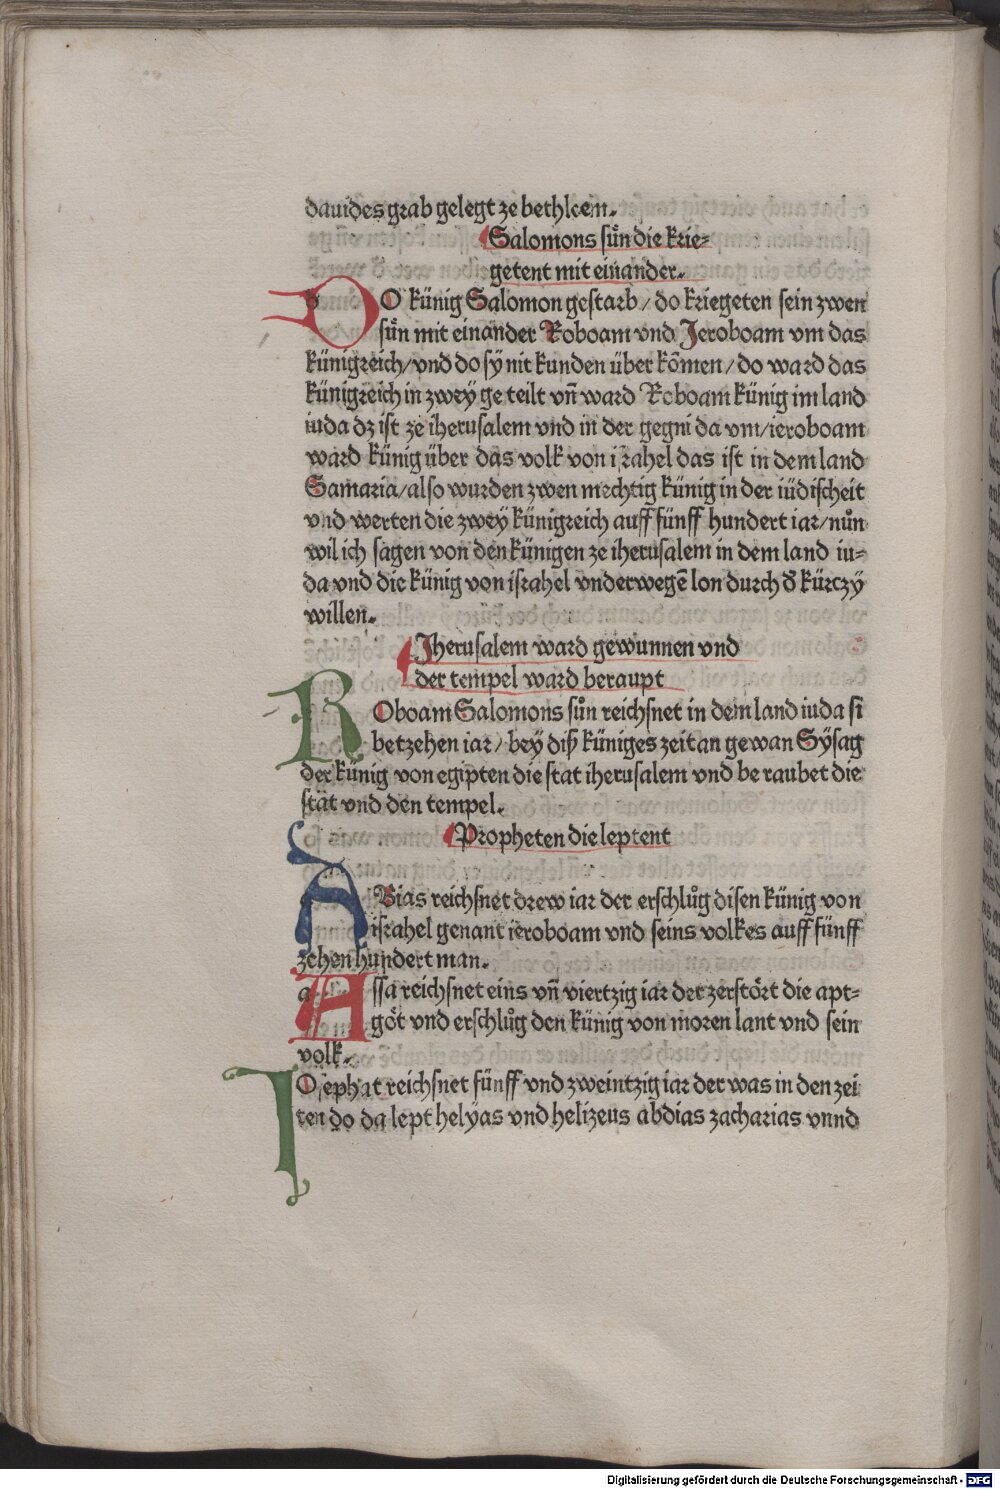 dauides grab gelegt ze bethleem.
Salomons sün die krie⸗
getent mit einander.
DO künig Salomon gestarb/ do kriegeten sein zwen
sün mit einander Roboam vnd Jeroboam vm das
künigreich/ vnd do sÿ nit kunden über kōmen/ do ward das
künigreich in zweÿ ge teilt vñ ward Roboam künig im land
iuda dz ist ze iherusalem vnd in der gegni da vm/ ieroboam
ward künig über das volk von israhel das ist in dem land
Samaria/ also wurden zwen mechtig künig in der iüdischeit
vnd werten die zweÿ künigreich auff fünff hundert iar/ nůn
wil ich sagen von den künigen ze iherusalem in dem land iu⸗
da vnd die künig von israhel vnderwegē lon durch d̕ kürczÿ
willen.
Jherusalem ward gewunnen vnd
der tempel ward beraupt
ROboam Salomons sůn reichsnet in dem land iuda si
betzehen iar/ beÿ diß küniges zeit an gewan Sÿsag
der künig von egipten die stat iherusalem vnd be raubet die
stat vnd den tempel.
Propheten die leptent
ABias reichsnet drew iar der erschlůg disen künig von
israhel genant ieroboam vnd seins volkes auff fünff
zehen hundert man.
Assa reichsnet eins vñ viertzig iar der zerstört die apt⸗
göt vnd erschlůg den künig von moren lant vnd sein
volk.
IOsephat reichsnet fünff vnd zweintzig iar der was in den zei
ten do da lept helÿas vnd helizeus abdias zacharias vnnd
Digitalisierung gefördert durch die Deutsche Forschungsgemeinschaft - DFG